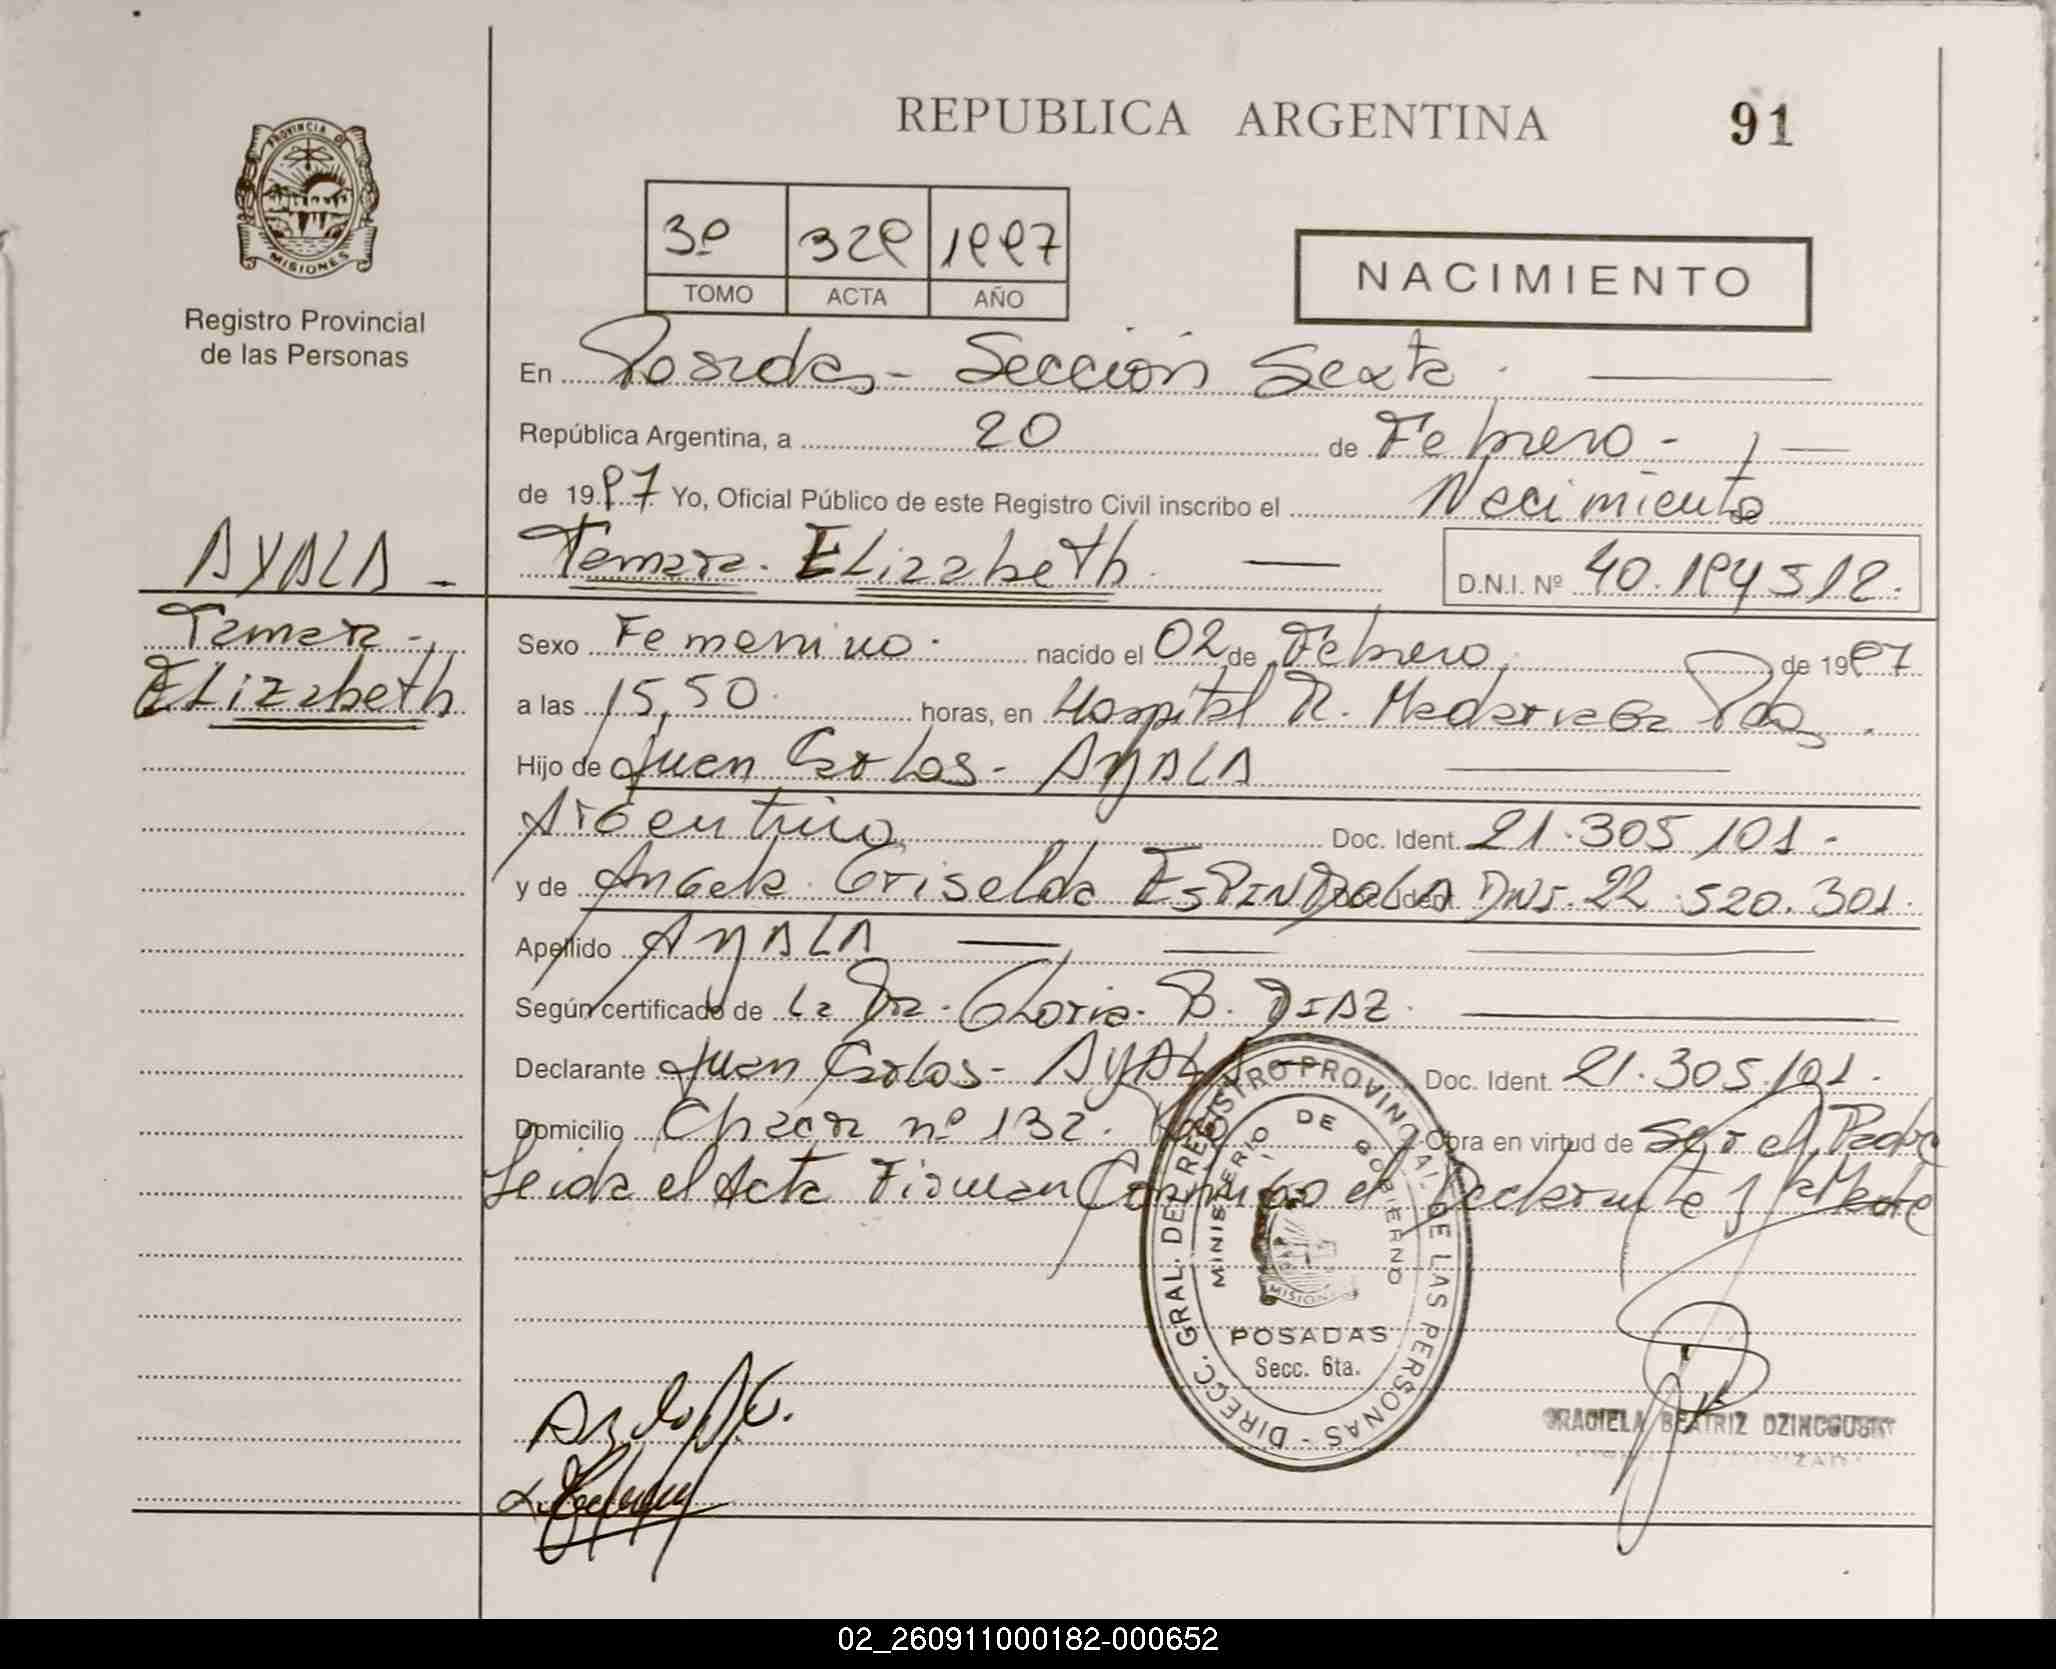 REPUBLICA ARGENTINA
91
PROVINCIA DE
MISIONES
Registro Provincial
de las Personas
3º 329 1997
TOMO ACTA AÑO
NACIMIENTO
En Posadas - Sección Sexta.
República Argentina, a 20 de Febrero -
de 1997 Yo, Oficial Público de este Registro Civil inscribo el Nacimiento
de
AYALA -
Tamara - Elizabeth
Tamara. Elizabeth. D.N.I. Nº 40.194512.
Sexo Femenino. nacido el 02 de Febrero de 1997
a las 15,50 horas, en Hospital R. Madariaga Pdas.
Hijo de Juan Carlos - AYALA
Argentino Doc. Ident. 21.305.101.
y de Angela Griselda ESPINDOLA Doc. Ident. DNI. 22.520.301.
Apellido AYALA
Según certificado de la Dra. Gloria B. DIAZ.
Declarante Juan Carlos - AYALA Doc. Ident. 21.305.101.
Domicilio Chacra nº 132. Obra en virtud de Ser el Padre
Leida el Acta Firman Conmigo el Declarante y la Madre
DIRECC. GRAL. DEL REGISTRO PROVINCIAL DE LAS PERSONAS -
MINISTERIO DE GOBIERNO
MISIONES
POSADAS
Secc. 6ta.
GRACIELA BEATRIZ
02_260911000182-000652